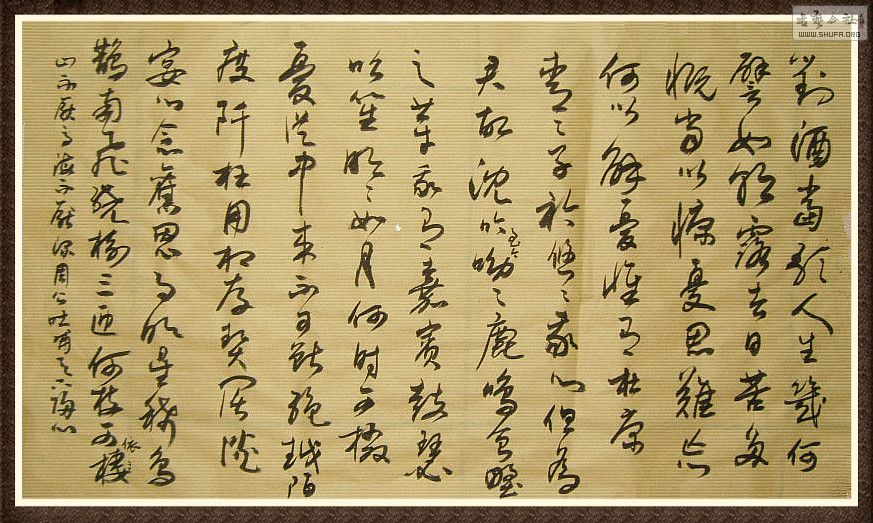 書藝公社
WWW.SHUFA.ORG
對酒當歌人生幾何
譬如朝露去日苦多
慨當以慷憂思難忘
何以解憂惟有杜康
青々子衿悠々我心但為
君故沈吟至今呦々鹿鳴食野
之苹我有嘉賓鼓瑟
吹笙明々如月何時可掇
憂從中來不可斷絕越陌
度阡枉用相存契闊談
宴心念舊恩月明星稀烏
鵲南飛繞樹三匝何枝可棲
依
山不厭高海不厭深周公吐哺天下歸心